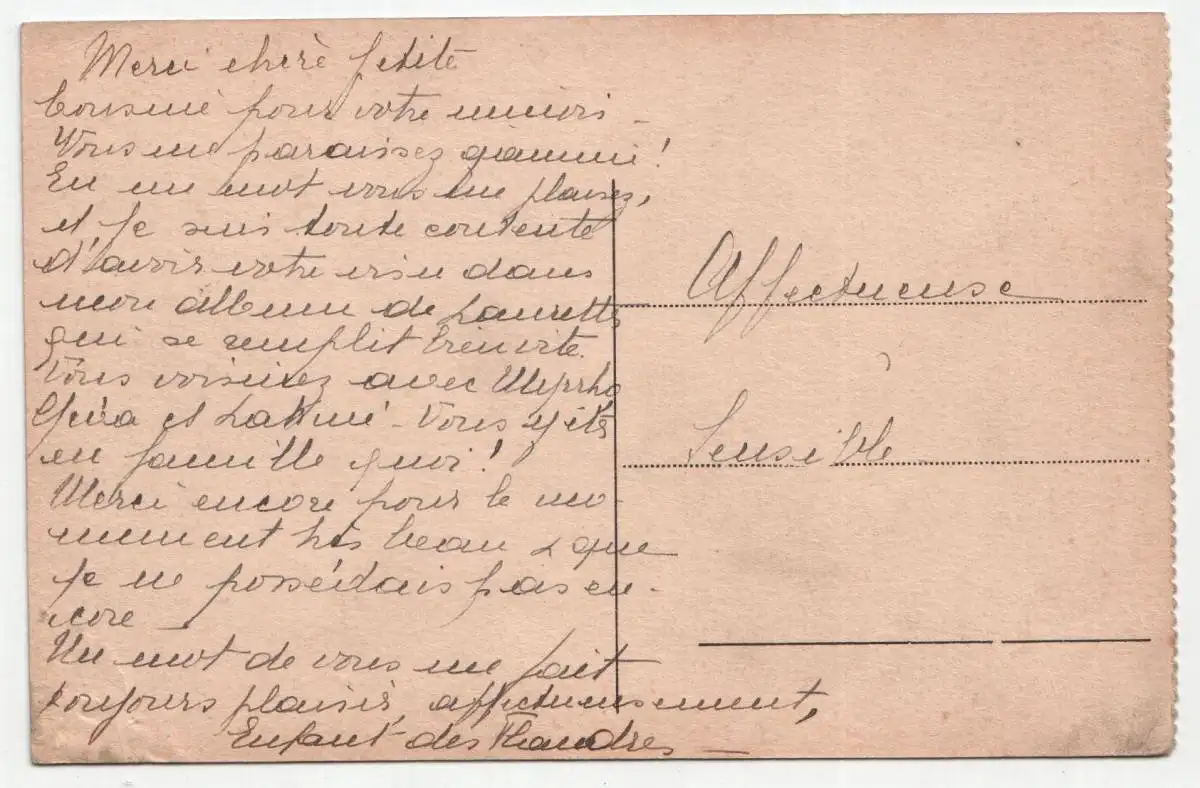 Merci chère petite
Cousine pour votre minois -
Vous me paraissez gamine!
En un mot vous me plaisez,
et je suis toute contente
d'avoir votre visu dans
mon album de Lauretts
qui se remplit bien vite.
Vous voisinez avec Myrrha
et Lakmé - Vous y êtes
en famille quoi!
Merci encore pour le mo-
mument très beau & que
je ne possédais pas en-
core -
Un mot de vous me fait
toujours plaisir, affectueusement,
Enfant des Flandres -
Affectueuse
Sensible